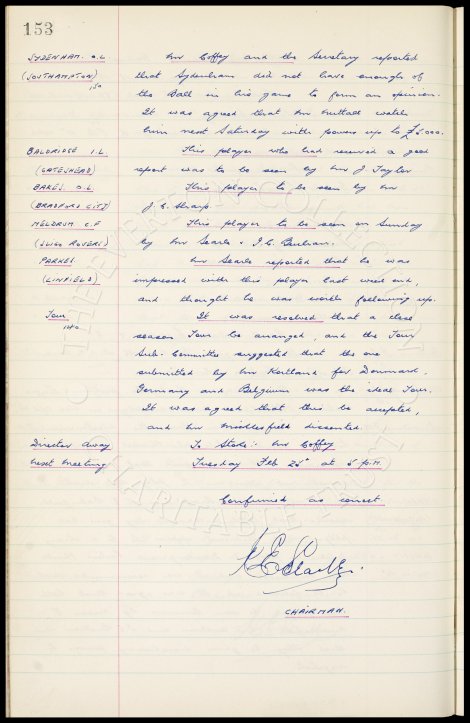 153
SYDENHAM. O.L Mr Coffey and the Secretary reported
(SOUTHAMPTON) that Sydenham did not have enough of
150 the Ball in his game to form an opinion.
It was agreed that Mr Nuttall watch
him next Saturday with powers up to £5,000.
BALDRIDGE I.L. This player who had received a good
(GATESHEAD) report was to be seen by Mr J Taylor
BAKES. O.L This player to be seen by Mr
(BRADFORD CITY) J. E. Sharp.
MELDRUM C.F This player to be seen on Sunday
(SLIGO ROVERS) by Mr Searle & J. C. Benham.
PARKES. Mr Searle reported that he was
(LINFIELD) impressed with this player last week end,
and thought he was worth following up.
Tour It was resolved that a close
season Tour be arranged, and the Tour
Sub. Committee suggested that the one
submitted by Mr Kortland for Denmark,
Germany and Belgium was the ideal Tour.
It was agreed that this be accepted,
and Mr Micklesfield dissented.
Director Away To Stoke:- Mr Coffey
Next Meeting Tuesday Feb 25th at 5 p.m.
Confirmed as correct.
CHAIRMAN.
© THE EVERTON COLLECTION CHARITABLE TRUST